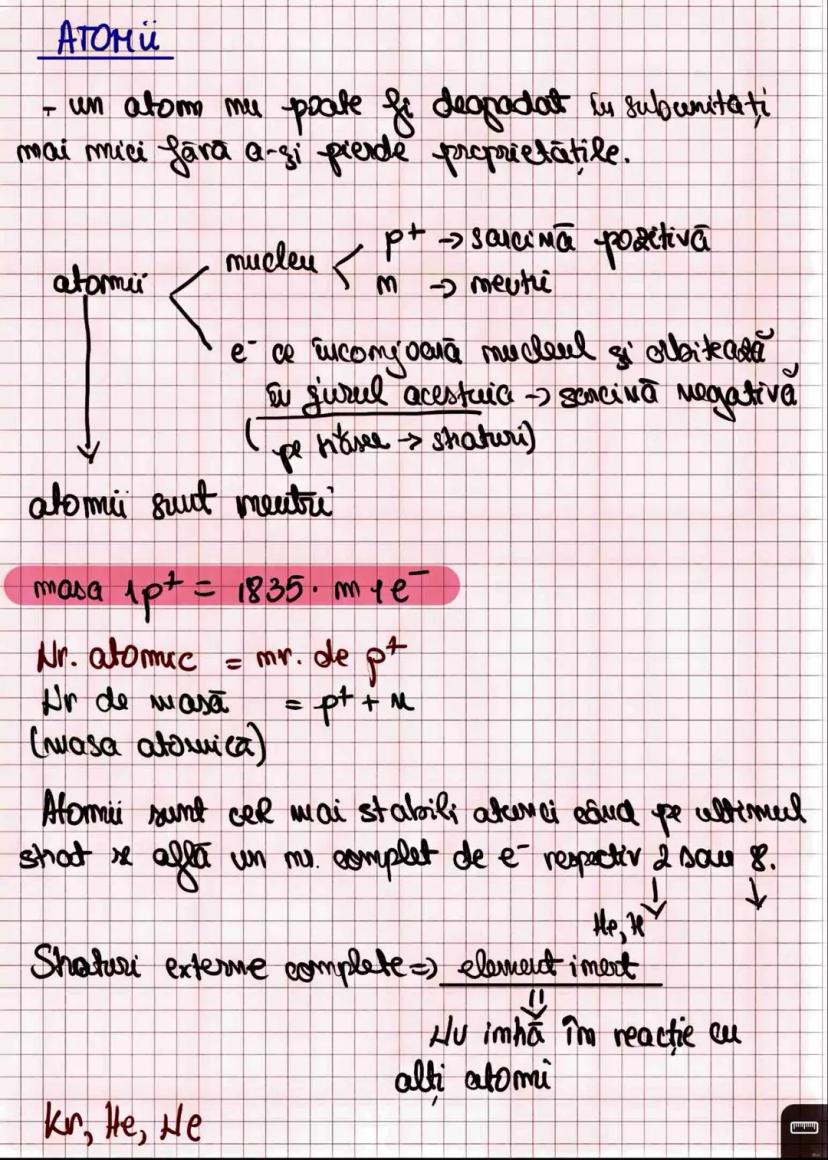 ATOMii
- un atom nu poate fi degradat în subunități
mai mici fără a-și pierde proprietățile.
p+ → sarcină pozitivă
nucleu <
atomii
n → neutri
e- ce înconjoară nucleul și orbitează
în jurul acestuia → sarcină negativă
( pe trasee → straturi)
atomii sunt neutri
masa 1p+ = 1835 · m 1e-
Nr. atomic = nr. de p+
Nr de masă = p+ + n
(masa atomică)
Atomii sunt cei mai stabili atunci când pe ultimul
strat se află un nr. complet de e- respectiv 2 sau 8.
He, H
Straturi externe complete => element inert
Nu intră în reacție cu
alți atomi
Kr, He, Ne